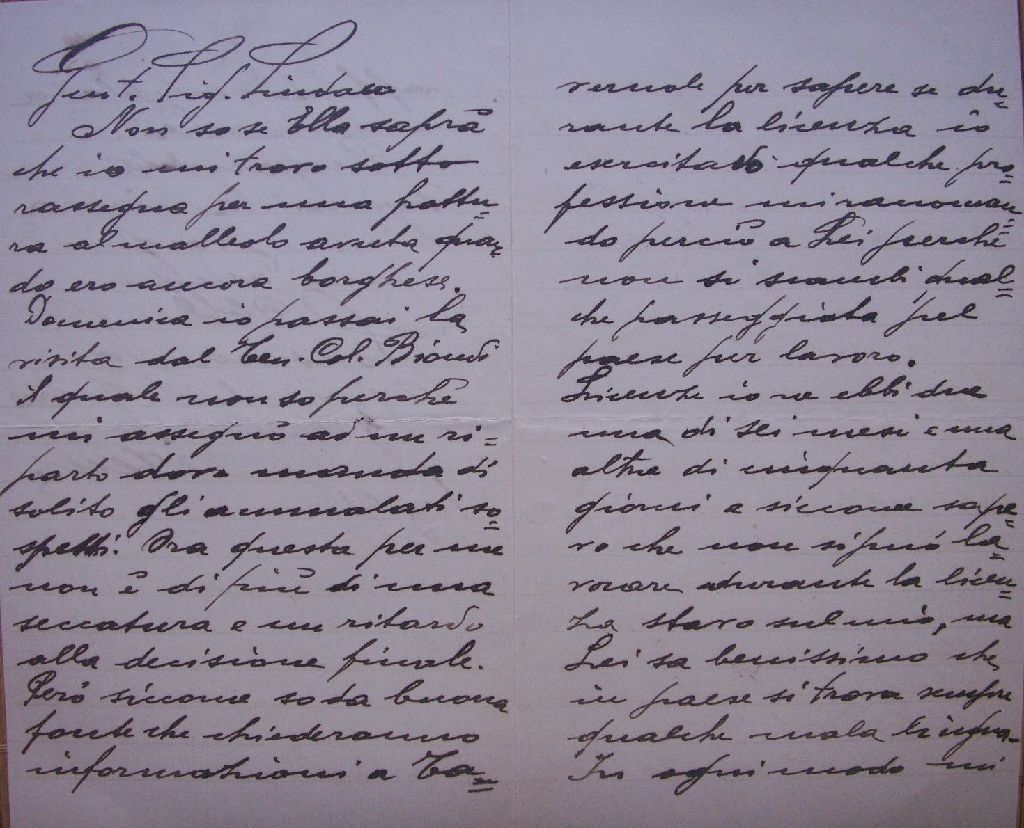 Gent. Sig. Sindaco
Non so se Ella saprà
che io mi trovo sotto
rassegna per una frattu=
ra al malleolo avuta quan=
do ero ancora borghese.
Domenica io passai la
visita dal Ten. Col. Biondi
il quale non so perchè
mi assegnò ad un ri=
parto dove manda di
solito gli ammalati so=
spetti. Ora questa per me
non è di più di una
seccatura e un ritardo
alla decisione finale.
Però siccome so da buona
fonte che chiederanno
informazioni a Ta=
vernole per sapere se du=
rante la licenza io
esercitavo qualche pro=
fessione mi raccoman=
do perciò a Lei perchè
non si scambi qual=
che passeggiata pel
paese per lavoro.
Licenze io ne ebbi due
una di sei mesi e una
altra di cinquanta
giorni e siccome sape=
vo che non si può la=
vorare durante la licen=
za stavo sul mio, ma
Lei sa benissimo che
in paese si trova sempre
qualche mala lingua.
In ogni modo mi